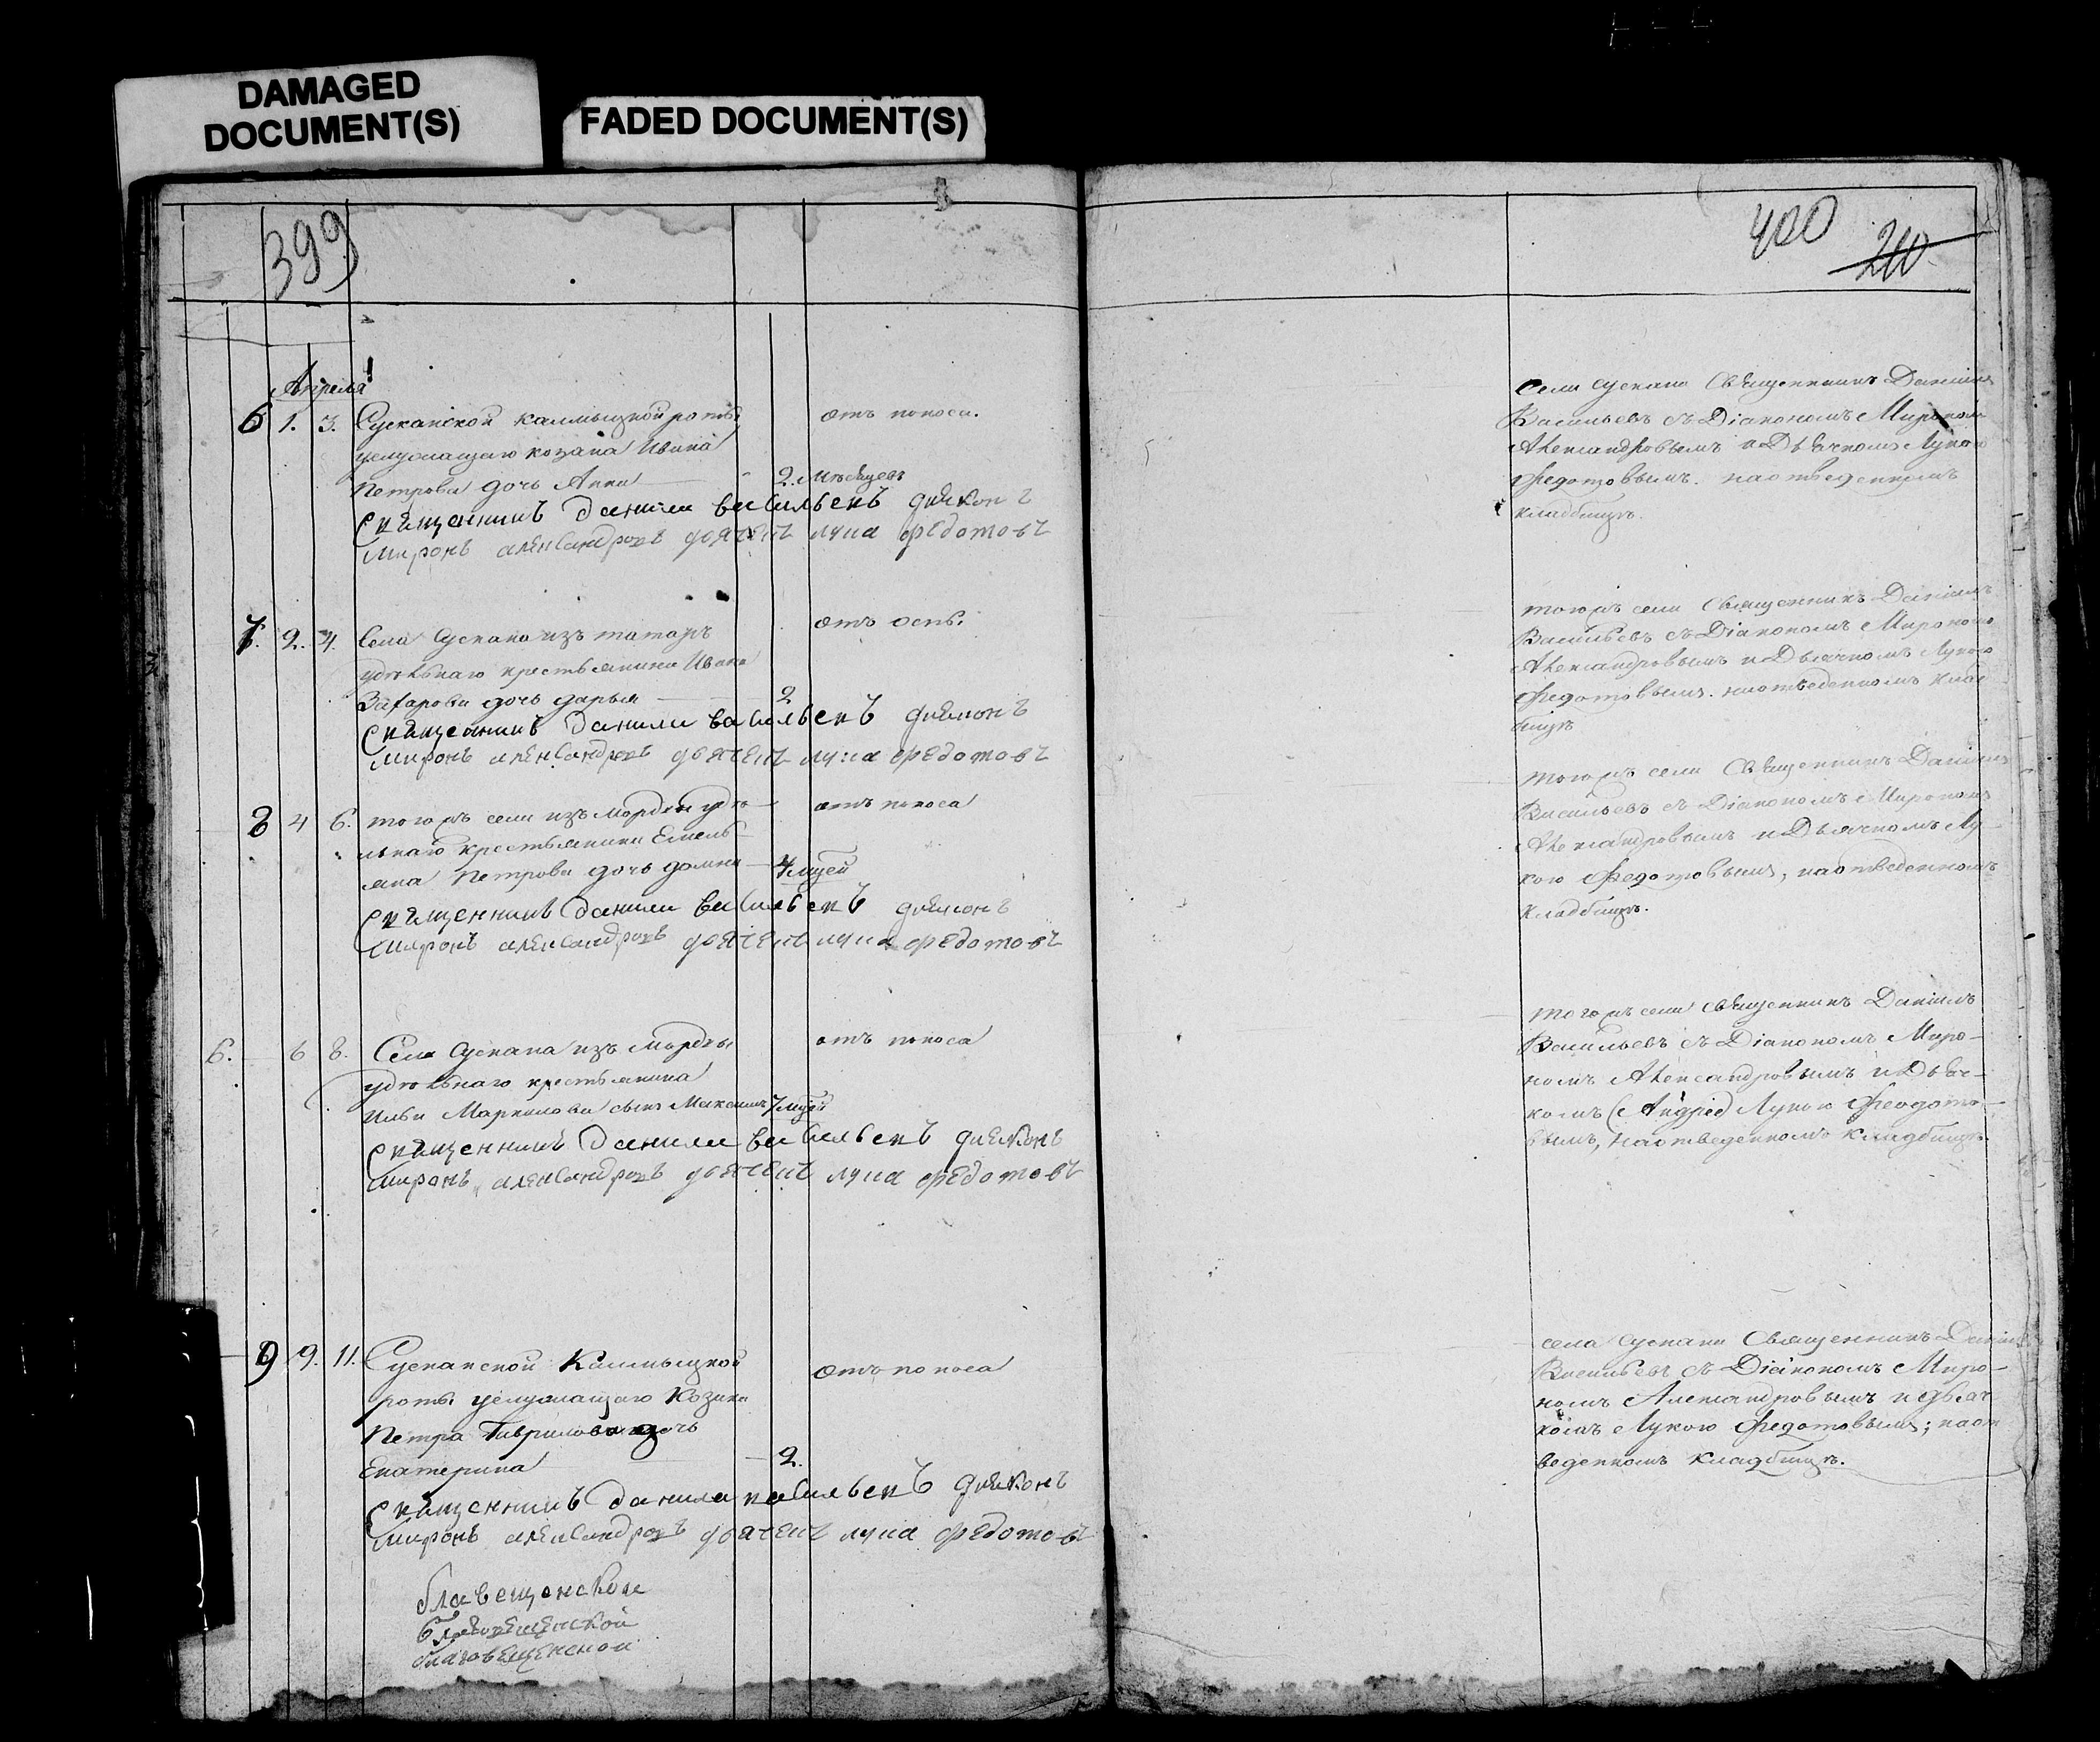 DAMAGED
DOCUMENT(S)
FADED DOCUMENT(S)
399
Апреля
6 1. 3. Сусканской калмыцкой роты
служащаго козака Ивана
Петрова дочь Анна 2. Мѣсяцевъ
отъ поноса.
Священникъ Данила Васильевъ дияконъ
Миронъ александровъ дьячекъ лука федотовъ
7. 2. 4. Села Сускана изъ татаръ
удѣльнаго крестьянина Ивана
Захарова дочь дарья 2
отъ оспы.
Священникъ Данила Васильевъ дияконъ
Миронъ александровъ дьячекъ лука федотовъ
8 4 6. тогожъ села изъ мордвы удѣ-
льнаго крестьянина Емель-
яна Петрова дочь домна 4 мцей
отъ поноса
Священникъ Данила Васильевъ дияконъ
Миронъ александровъ дьячекъ лука федотовъ
6. 6 8. Села Сускана изъ мордвы
удѣльнаго крестьянина
Ильи Маркилова сынъ Максимъ 7 мцей
отъ поноса
Священникъ Данила Васильевъ дияконъ
Миронъ александровъ дьячекъ лука федотовъ
9 9. 11. Сусканской Калмыцкой
роты служащаго Козака
Петра Гаврилова дочь
Екатерина 2.
отъ поноса
Священникъ Данила Васильевъ дияконъ
Миронъ александровъ дьячекъ лука федотовъ
благовещенской
благовещенской
400
210
села Сускана Священникъ Данiилъ
Васильевъ съ Дiакономъ Мирономъ
Александровымъ и Дьячкомъ Лукою
Федотовымъ. наотведенномъ
кладбищѣ.
тогожъ села Священникъ Данiилъ
Васильевъ съ Дiакономъ Мирономъ
Александровымъ и Дьячкомъ Лукою
Федотовымъ. наотведенномъ клад
бищѣ
тогожъ села Священникъ Данiилъ
Васильевъ съ Дiакономъ Мирономъ
Александровымъ и Дьячкомъ Лу-
кою Федотовымъ, наотведенномъ
кладбищѣ.
тогожъ села священникъ Данiилъ
Васильевъ съ Дiакономъ Миро-
номъ Александровымъ и Дьяч-
комъ (Андрей) Лукою Феодото-
вымъ, наотведенномъ кладбищѣ.
села Сускана Священникъ Данiилъ
Васильевъ съ Дiакономъ Миро-
номъ Александровымъ и дьяч
комъ Лукою Федотовымъ; наот
веденномъ кладбищѣ.